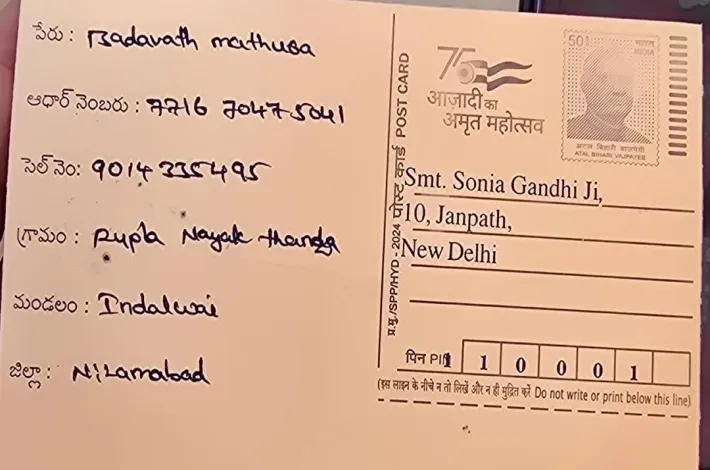 పేరు : Badavath mathusa
ఆధార్ నెంబరు : 7716 7047 5041
సెల్ నెం: 9014335495
గ్రామం : Rupla Nayak thanda
మండలం : Indalwai
జిల్లా : Nizamabad
प्र.मु./SPP/HYD - 2024 पोस्ट कार्ड POST CARD
75
आज़ादी का
अमृत महोत्सव
50
भारत
INDIA
अटल बिहारी वाजपेयी
ATAL BIHARI VAJPAYEE
Smt. Sonia Gandhi Ji,
10, Janpath,
New Delhi
पिन PIN 1 1 0 0 0 1
(इस लाइन के नीचे न तो लिखें और न ही मुद्रित करें Do not write or print below this line)